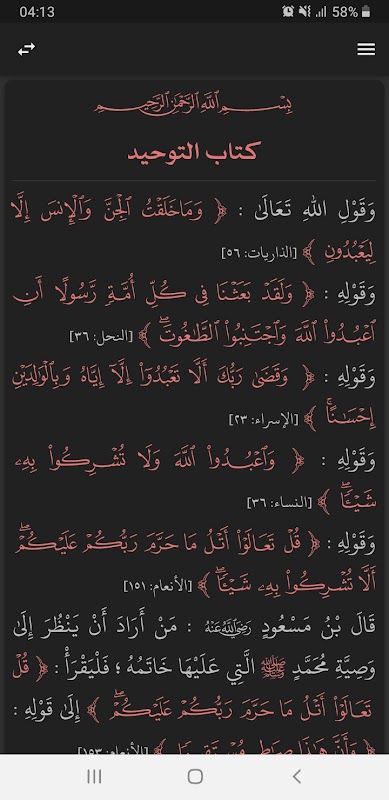 04:13 58%
بِسْمِ ٱللَّهِ ٱلرَّحْمَٰنِ ٱلرَّحِيمِ
كتاب التوحيد
وَقَوْلِ اللهِ تَعَالَىٰ : ﴿ وَمَا خَلَقْتُ ٱلْجِنَّ وَٱلْإِنسَ إِلَّا
لِيَعْبُدُونِ ﴾ [الذاريات: ٥٦]
وَقَوْلِهِ : ﴿ وَلَقَدْ بَعَثْنَا فِى كُلِّ أُمَّةٍ رَّسُولًا أَنِ
ٱعْبُدُوا۟ ٱللَّهَ وَٱجْتَنِبُوا۟ ٱلطَّٰغُوتَ ۖ ﴾ [النحل: ٣٦]
وَقَوْلِهِ : ﴿ وَقَضَىٰ رَبُّكَ أَلَّا تَعْبُدُوٓا۟ إِلَّآ إِيَّاهُ وَبِٱلْوَٰلِدَيْنِ
إِحْسَٰنًا ۚ ﴾ [الإسراء: ٢٣]
وَقَوْلِهِ : ﴿ وَٱعْبُدُوا۟ ٱللَّهَ وَلَا تُشْرِكُوا۟ بِهِۦ
شَيْـًٔا ۖ ﴾ [النساء: ٣٦]
وَقَوْلِهِ : ﴿ قُلْ تَعَالَوْا۟ أَتْلُ مَا حَرَّمَ رَبُّكُمْ عَلَيْكُمْ ۖ
أَلَّا تُشْرِكُوا۟ بِهِۦ شَيْـًٔا ۖ ﴾ [الأنعام: ١٥١]
قَالَ بْنُ مَسْعُودٍ رَضِيَ اللَّهُ عَنْهُ : مَنْ أَرَادَ أَنْ يَنْظُرَ إِلَىٰ
وَصِيَّةِ مُحَمَّدٍ ﷺ الَّتِي عَلَيْهَا خَاتَمُهُ ؛ فَلْيَقْرَأْ : ﴿ قُلْ
تَعَالَوْا۟ أَتْلُ مَا حَرَّمَ رَبُّكُمْ عَلَيْكُمْ ۖ ﴾ إِلَىٰ قَوْلِهِ :
﴿ وَأَنَّ هَٰذَا صِرَٰطِى مُسْتَقِيمًا ﴾ [الأنعام: ١٥٣]